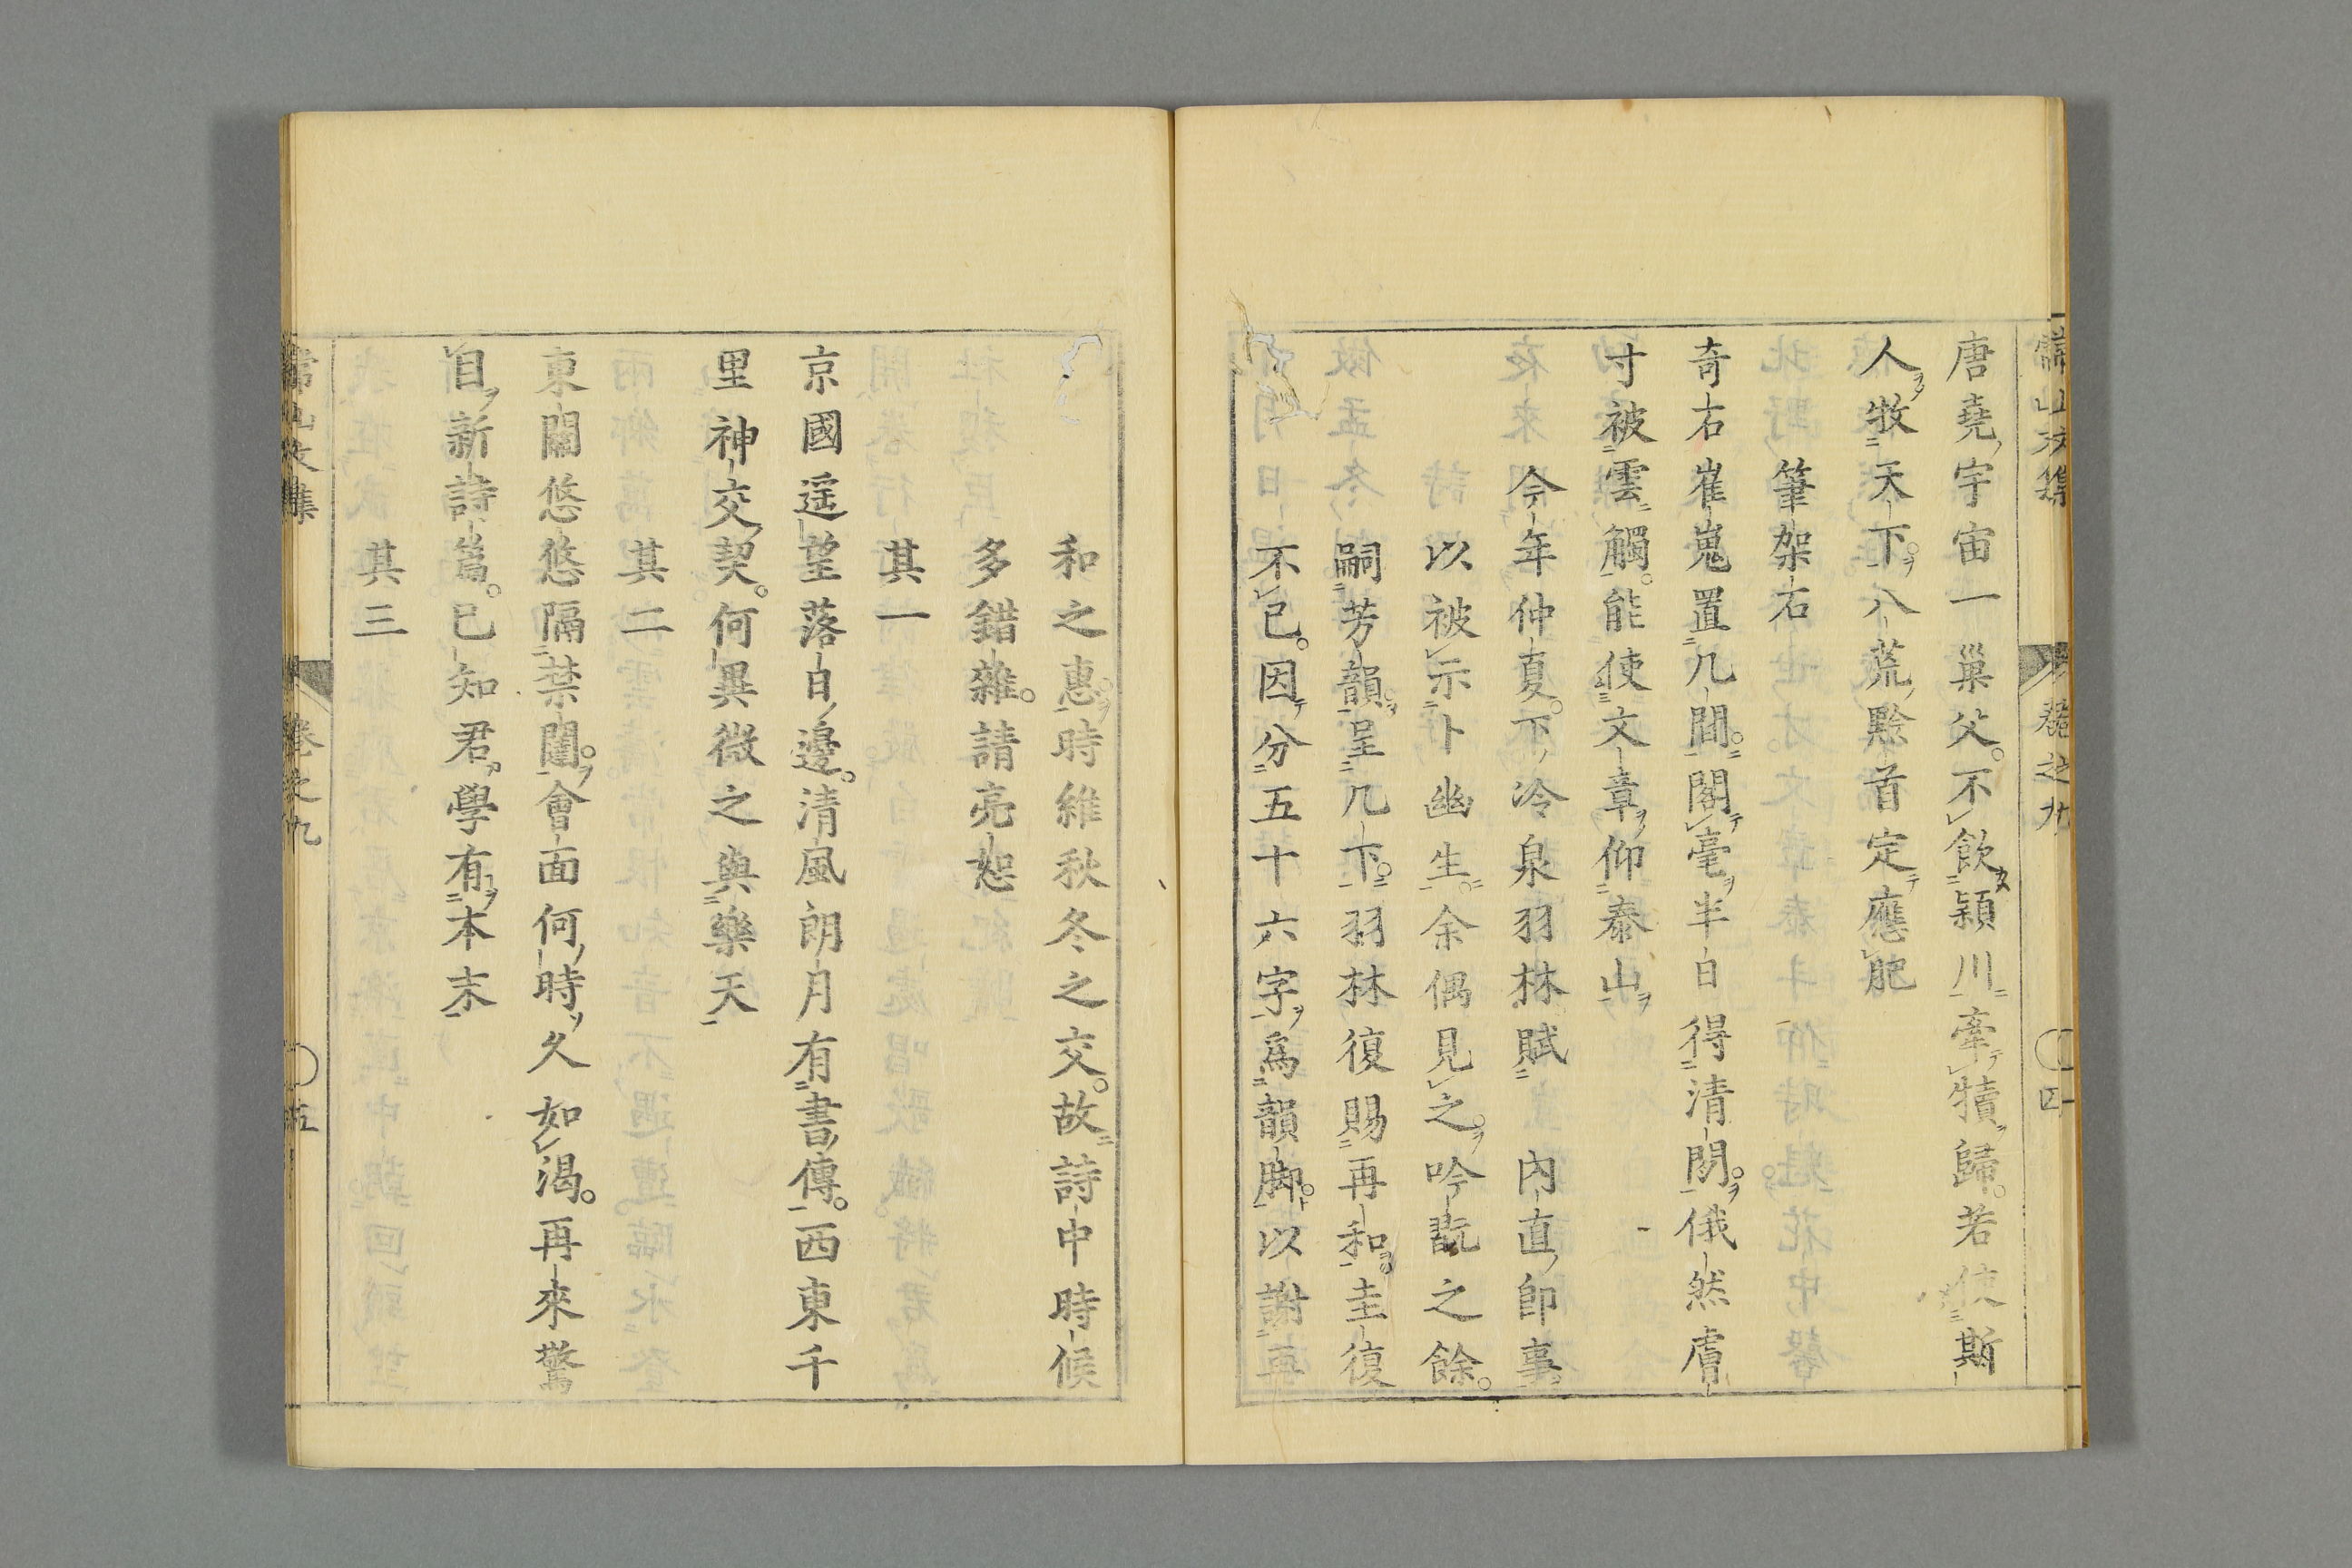 常山文集 卷之九 四
唐堯宇宙一巢父不飲潁川牽犢歸若使斯
人牧天下八荒黔首定應肥
筆架石
奇石崔嵬置几間閣毫半日得清閑俄然膚
寸被雲觸能使文章仰泰山
今年仲夏下冷泉羽林賦 内直即事
以被示卜幽生余偶見之吟翫之餘
嗣芳韻呈几下羽林復賜再和圭復
不已因分五十六字爲韻脚以謝再
和之惠時維秋冬之交故詩中時候
多錯雜請亮恕
其一
京國遥望落日邊清風朗月有書傳西東千
里神交契何異微之與樂天
其二
東關悠悠隔禁闈會面何時久如渴再來驚
目新詩篇已知君學有本末
其三
常山文集 卷之九 五